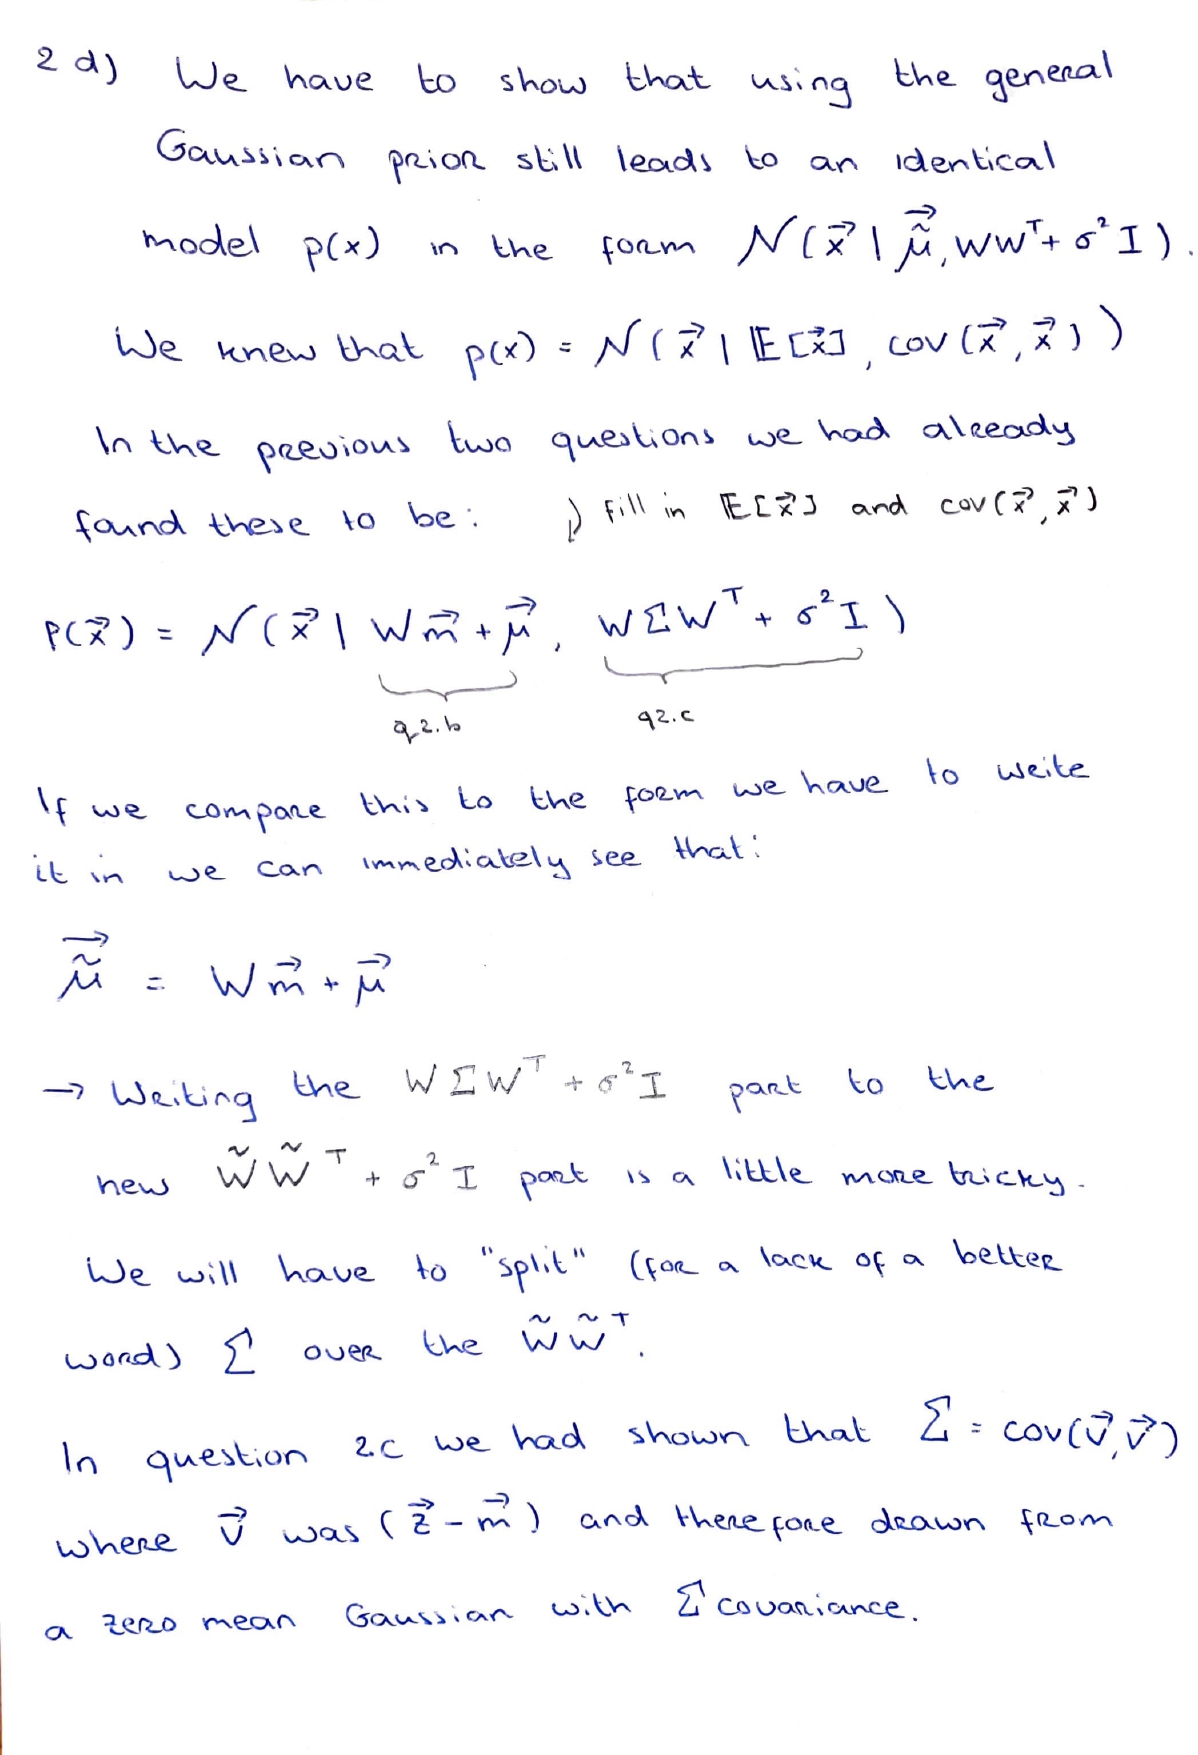 2 d) We have to show that using the general
Gaussian prior still leads to an identical
model p(x) in the form N(x⃗ | μ̃⃗, WWᵀ + σ²I).
We knew that p(x) = N(x⃗ | 𝔼[x⃗], cov(x⃗, x⃗))
In the previous two questions we had already
found these to be: ⤵ fill in 𝔼[x⃗] and cov(x⃗, x⃗)
P(x⃗) = N(x⃗ | Wm⃗ + μ⃗, WΣWᵀ + σ²I)
q2.b q2.c
If we compare this to the form we have to write
it in we can immediately see that:
μ̃⃗ = Wm⃗ + μ⃗
→ Writing the WΣWᵀ + σ²I part to the
new W̃W̃ᵀ + σ²I part is a little more tricky.
We will have to "split" (for a lack of a better
word) Σ over the W̃W̃ᵀ.
In question 2.c we had shown that Σ = cov(v⃗, v⃗)
where v⃗ was (z⃗ - m⃗) and therefore drawn from
a zero mean Gaussian with Σ covariance.